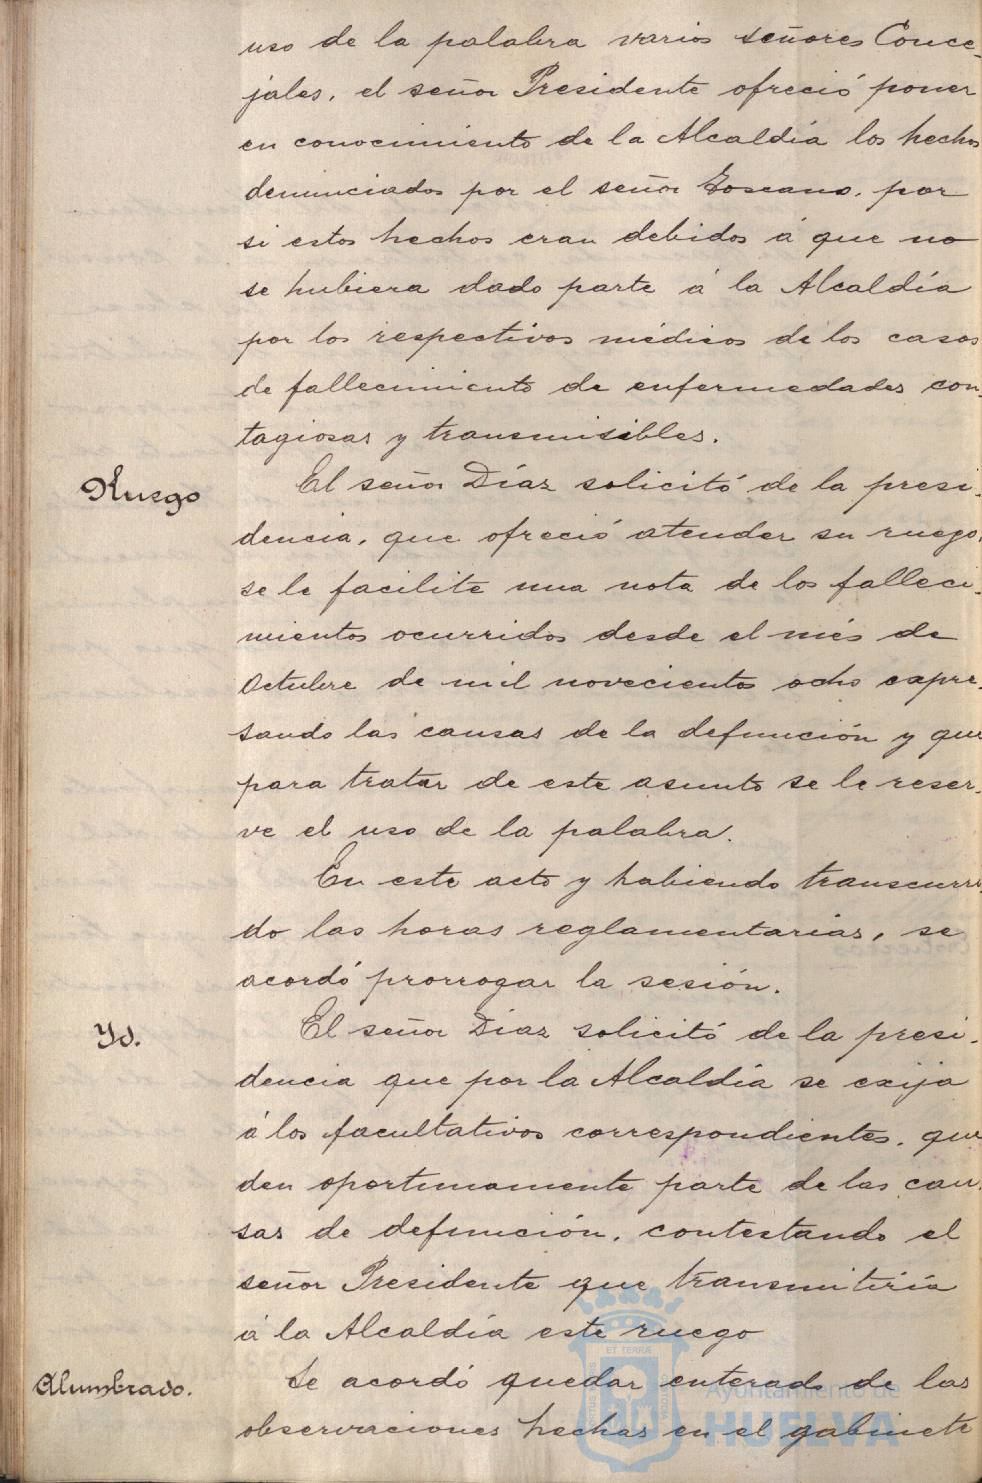 uso de la palabra varios señores Conce-
jales, el señor Presidente ofreció poner
en conocimiento de la Alcaldía los hechos
denunciados por el señor Toscano, por
si estos hechos eran debidos á que no
se hubiera dado parte á la Alcaldía
por los respectivos médicos de los casos
de fallecimiento de enfermedades con-
tagiosas y transmisibles.
Ruego
El señor Díaz solicitó de la presi-
dencia, que ofreció atender su ruego,
se le facilite una nota de los falleci-
mientos ocurridos desde el més de
Octubre de mil novecientos ocho expre-
sando las causas de la defunción y que
para tratar de este asunto se le reser-
ve el uso de la palabra.
En este acto y habiendo transcurri-
do las horas reglamentarias, se
acordó prorrogar la sesión.
Yd.
El señor Díaz solicitó de la presi-
dencia que por la Alcaldía se exija
á los facultativos correspondientes, que
den oportunamente parte de las cau-
sas de defunción, contestando el
señor Presidente que transmitiría
á la Alcaldía este ruego
Alumbrado.
Se acordó quedar enterado de las
observaciones hechas en el gabinete
ET TERRÆ
Ayuntamiento de
HUELVA